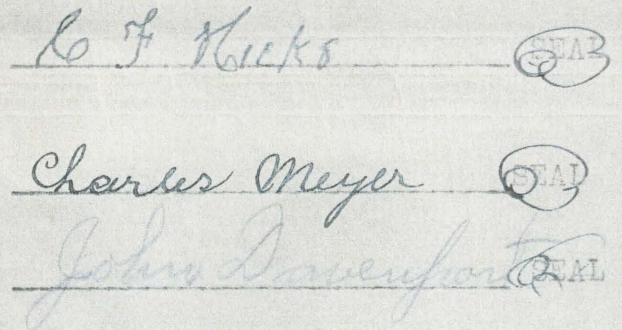 C F Hicks SEAL
Charles Meyer SEAL
John Davenport SEAL